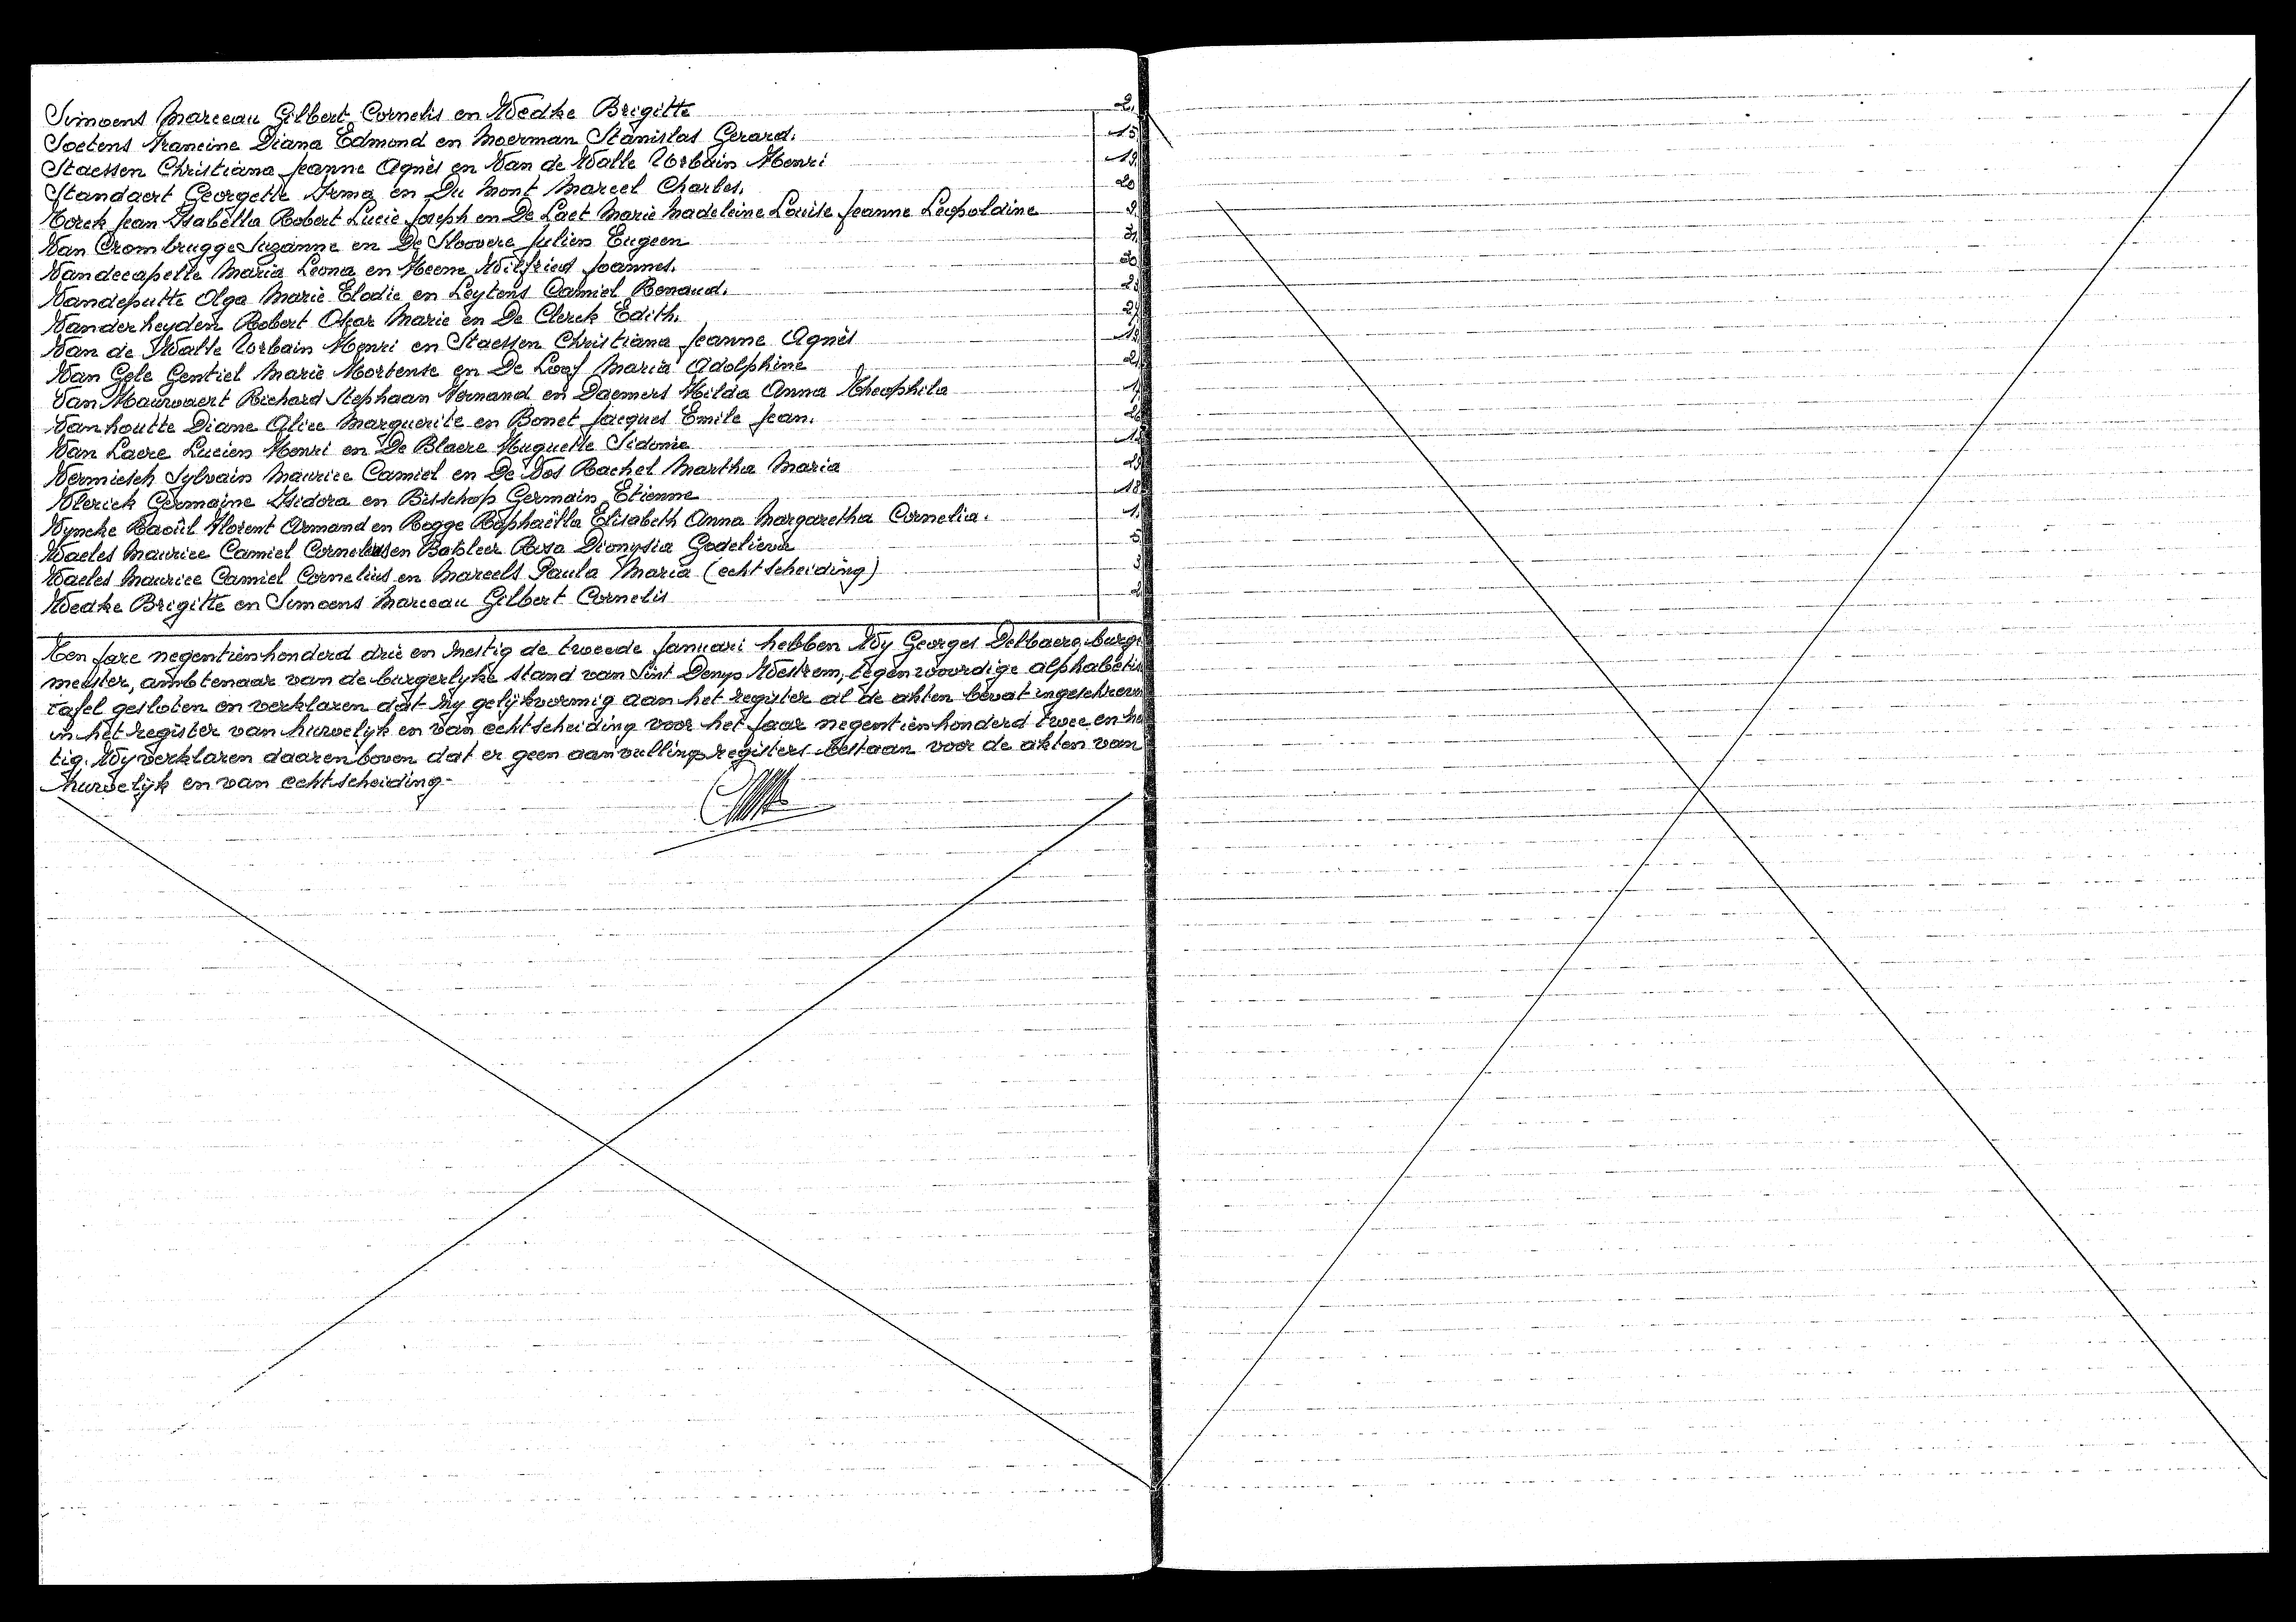 Simoens Marceau Gilbert Cornelis en Wedke Brigitte 2.
Soetens Francine Diana Edmond en Moerman Stanislas Gerard. 15
Staessen Christiana Jeanne Agnès en Van de Walle Urbain Henri 19
Standaert Georgette Irma en Du Mont Marcel Charles. 20
Torck Jean Isabella Robert Lucie Joseph en De Laet Marie Madeleine Louise Jeanne Leopoldine 9
Van Crombrugge Suzanne en De Sloovere Julien Eugeen
Vandecapelle Maria Leona en Heene Wilfried Joannes.
Vandeputte Olga Marie Elodie en Leytens Camiel Renaud.
Vanderheyden Robert Oscar Marie en De Clerck Edith.
Van de Walle Urbain Henri en Staessen Christiana Jeanne Agnès 19
Van Gele Gentiel Marie Hortense en De Loof Maria Adolphine
Van Hauwaert Richard Stephaan Fernand en Daemers Hilda Anna Theophila
Vanhoutte Diane Alice Marguerite en Bonet Jacques Emile Jean.
Van Laere Lucien Henri en De Blaere Huguette Sidonie
Vermiesch Sylvain Maurice Camiel en De Vos Rachel Martha Maria
Vlerick Germaine Isidora en Bisschop Germain Etienne 18
Vyncke Raoûl Florent Armand en Rogge Raphaëlla Elisabeth Anna Margaretha Cornelia. 1.
Waeles Maurice Camiel Cornelius en Batsleer Rosa Dionysia Godelieva 5
Waeles Maurice Camiel Cornelius en Marcels Paula Maria (echtscheiding) 3
Wedke Brigitte en Simoens Marceau Gilbert Cornelis 2
Ten jare negentienhonderd drie en zestig de tweede januari hebben Wy Georges Delbaere, burge
meester, ambtenaar van de burgerlyke stand van Sint Denys Westrem, tegenwoordige alphabetis
tafel gesloten en verklaren dat zy gelijkvormig aan het register al de akten bevat ingeschreven
in het register van huwelijk en van echtscheiding voor het jaar negentienhonderd twee en zes
tig. Wy verklaren daarenboven dat er geen aanvullingsregisters bestaan voor de akten van
huwelijk en van echtscheiding.-